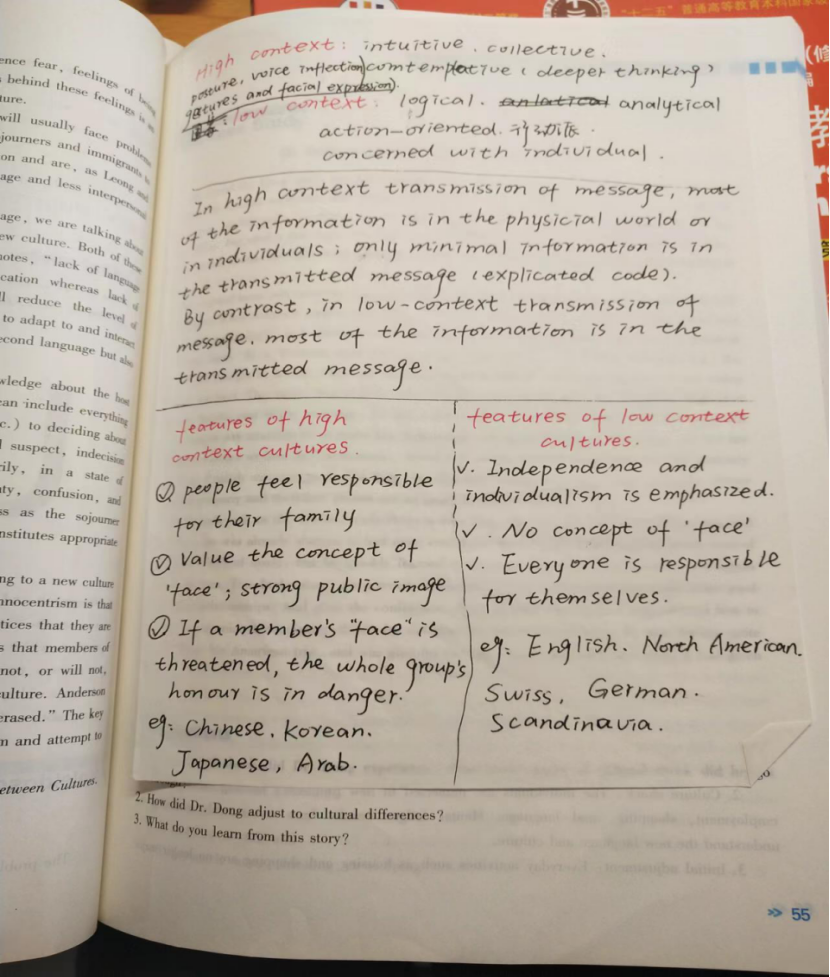 "十二五"普通高等教育本科国家级
High context: intuitive. collective.
posture, voice inflection) comtemplative (deeper thinking)
gestures and facial expression).
low context: logical. analytical
action-oriented. 行动派.
concerned with individual.
In high context transmission of message, most
of the information is in the physicial world or
in individuals; only minimal information is in
the transmitted message (explicated code).
By contrast, in low-context transmission of
message. most of the information is in the
transmitted message.
features of high
context cultures.
① people feel responsible
for their family
② Value the concept of
'face'; strong public image
③ If a member's "face" is
threatened, the whole group's
honour is in danger.
eg: Chinese. Korean.
Japanese, Arab.
features of low context
cultures.
✓. Independence and
individualism is emphasized.
✓. No concept of 'face'
✓. Everyone is responsible
for themselves.
eg: English. North American.
Swiss, German.
Scandinavia.
2. How did Dr. Dong adjust to cultural differences?
3. What do you learn from this story?
>> 55
ence fear, feelings of
behind these feelings is
ture.
will usually face problems
journers and immigrants
on and are, as Leong and
age and less interpersonal
age, we are talking about
ew culture. Both of these
notes, "lack of language
cation whereas lack of
ll reduce the level of
to adapt to and interact
econd language but also
wledge about the host
can include everything
c.) to deciding about
l suspect, indecision
rily, in a state of
ty, confusion, and
ss as the sojourner
nstitutes appropriate
ng to a new culture
nnocentrism is that
tices that they are
s that members of
not, or will not,
culture. Anderson
erased." The key
n and attempt to
etween Cultures.